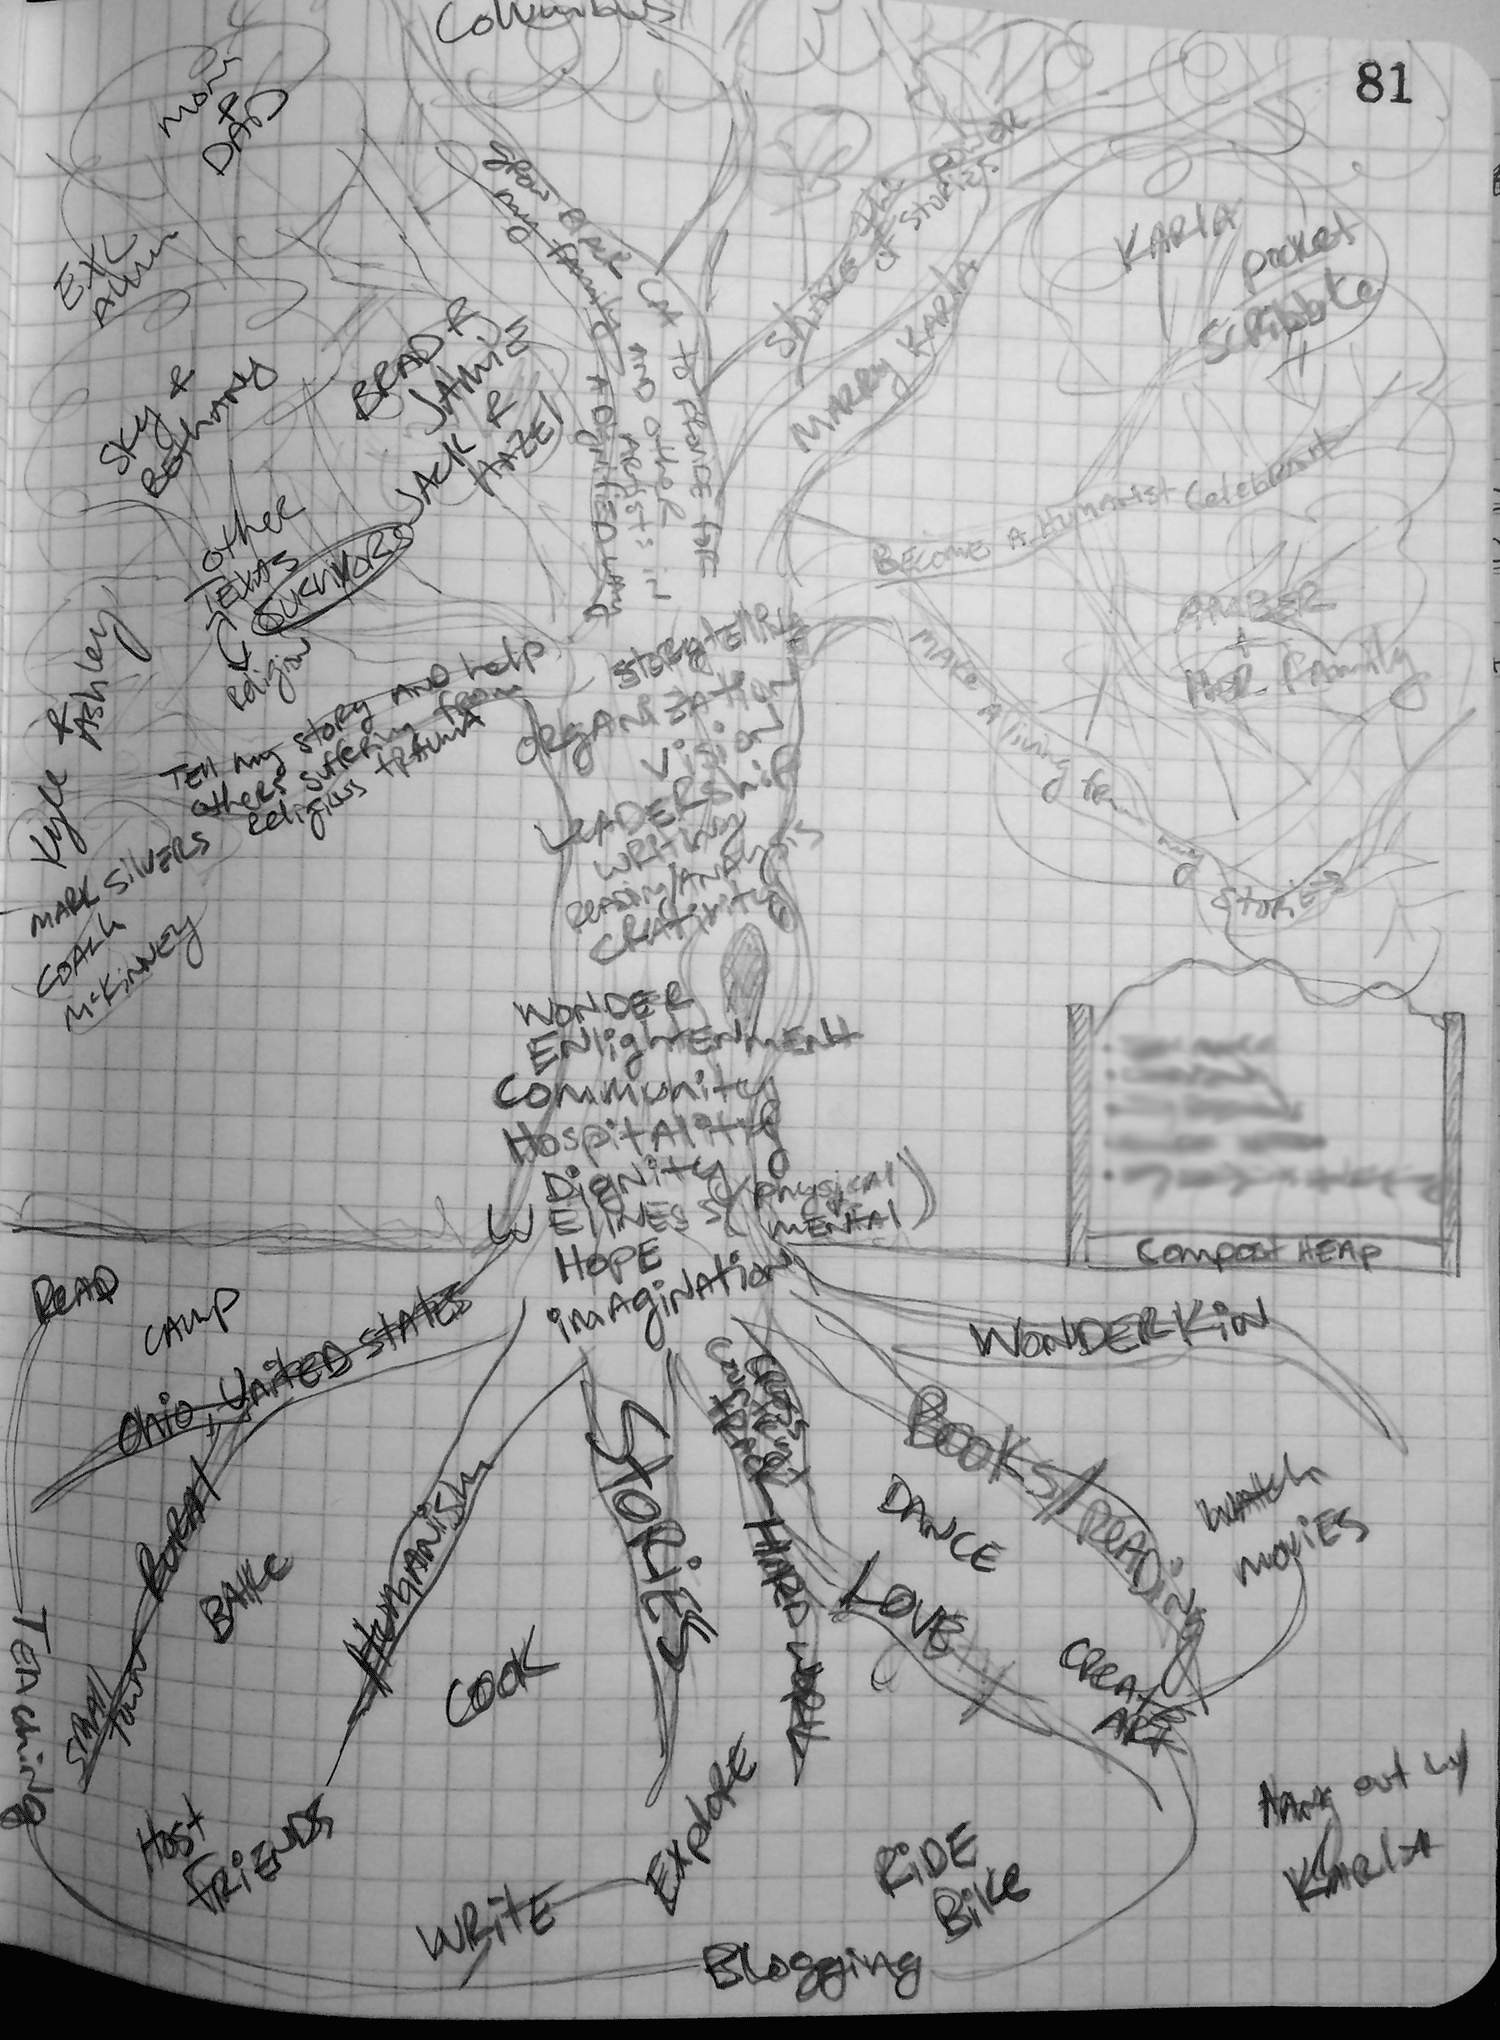 Columbus
81
MOM
&
DAD
EXC
Alum
SKY &
BETHANY
BRAD &
JAMIE
JACK &
HAZEL
other
TEXAS
SURVIVORS
Religion
Kyle & Ashley
MARK SILVERS
COACH
McKINNEY
Tell my story AND help
others suffering from
Religious TRAUMA
to PROVIDE FOR
my FAMILY
AND other
ARTISTS in
A DIGNIFIED WAY
SHARE the POWER
of STORIES
MARRY KARLA
KARLA
Pocket
Scribble
+
BECOME A Humanist Celebrant
AMBER
+
HER FAMILY
MAKE A living from my
STORIES
STORYTELLING
ORGANIZATION
Vision
LEADERSHIP
WRITING
READING/ANALYSIS
CREATIVITY
WONDER
ENlightENMENt
Community
HOSPITALITY
Dignity
WELLNESS (Physical
MENTAl)
HOPE
imAginAtioN
Compost HEAP
READ
CAMP
Ohio, United StAtes
RURAl
SMAll
town
BAKE
TEAching
Humanism
Cook
Host
FRIENDS
STORIES
CROSS
COUNTRY
TRACK
HARD WORK
WONDERKiN
Books/READiNg
DANCE
LOVE
WAtch
moviES
CREATE
ARt
WRitE
EXploRE
RiDE
BikE
HANg out w/
KARlA
Blogging